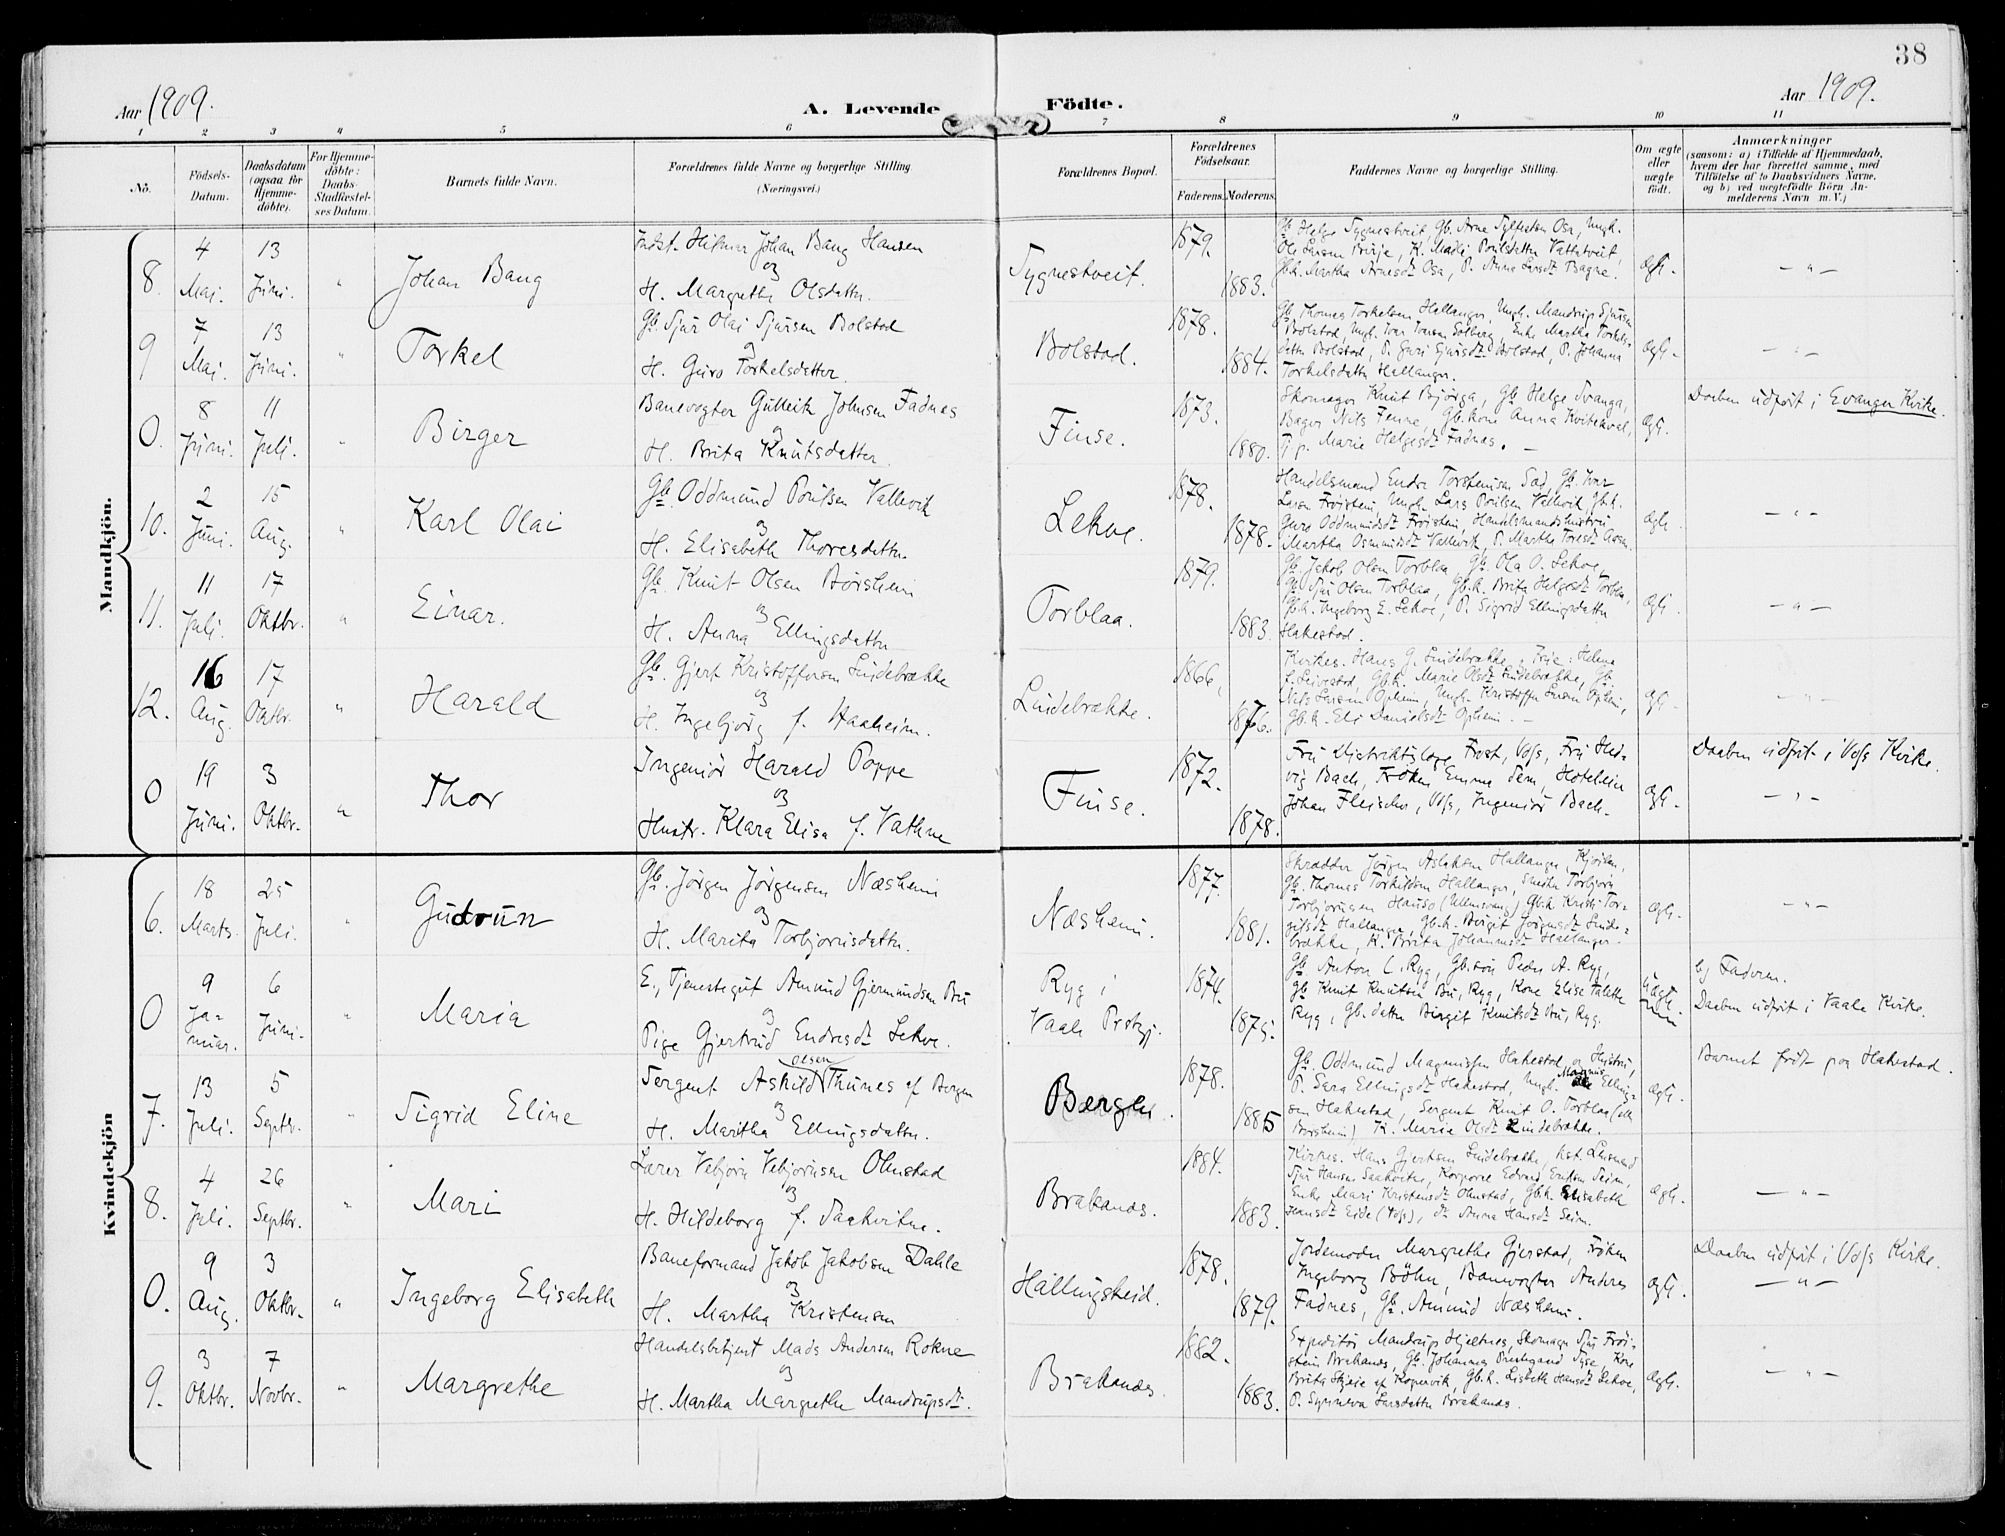 38
Aar 1909.
A. Levende Födte.
Aar 1909.
1 2 3 4 5 6 7 8 9 10 11
No.
Födsels-
Datum.
Daabsdatum
(ogsaa for
Hjemme-
döbte).
For Hjemme-
döbte:
Daabs-
Stadfæstel-
ses Datum.
Barnets fulde Navn.
Forældrenes fulde Navne og borgerlige Stilling
(Næringsvei.)
Forældrenes Bopæl.
Forældrenes
Födselsaar.
Faderens. Moderens.
Faddernes Navne og borgerlige Stilling.
Om ægte
eller
uægte
födt.
Anmærkninger
(saasom: a) i Tilfælde af Hjemmedaab,
hvem der har forrettet samme, med
Tilföielse af to Daabsvidners Navne.
og b) ved uægtefödte Börn An-
melderens Navn m. V.)
Mandkjön.
8. 4 Maj. 13 Juni. " Johan Bang
Johan Bang Hansen
og
H. Margrethe Olsdatter.
Tygnestveit. 1879. 1883.
Gb. Helge Tygnestveit, Gb. Arne Osa, Ungk.
Ole Larsen
Gbk. Martha Arnesdt Osa, P. Anna Larsdt
Ægt. — " —
9 7 Maj. 13 Juni. " Torkel
Gb Sjur Olai Sjursen Bolstad
og
H. Guro Torkelsdatter.
Bolstad. 1878. 1884.
Gb Thomas Torkelsen Hallanger, Ungk. Mandrup Sjursen
Bolstad, Ungk. Ivar Solberg, Enke Martha Torkels-
datter Bolstad, P. Guri Sjursdt Bolstad, P. Johanna
Torkelsdatter Hallanger.
Ægt. — " —
0. 8 Juni. 11 Juli. " Birger
Banevogter Gulleik Johnsen Fadnes
og
H. Brita Knutsdatter.
Finse. 1873. 1880.
Skomager Knut Bjørga, Gb Helge Svanga,
Bager Nils Fenne, Gb.kone Anna Kvitekval,
Pp. Marie Helgesdt Fadnes. —
Ægt.
Daaben udført i Evanger Kirke.
10. 2 Juni. 15 Aug. " Karl Olai
Gb. Oddmund Poulsen Vallevik
og
H. Elisabeth Thoresdatter.
Lekve. 1878. 1878.
Handelsmand Endre Torsteinsen Sad, Gb. Ivar
Larsen Frøistein, Ungk. Lars Poulsen Vallevik, Gbk.
Guro Oddmundsdt Frøistein, Handelsmandshustru
Martha Osmundsdt Vallevik, P. Martha Toresdt
Ægt. — " —
11. 11 Juli. 17 Oktbr. " Einar.
Gb. Knut Olsen Børsheim
og
H. Anna Ellingsdatter
Torblaa. 1879. 1883.
Gb. Jakob Olsen Torblaa, Gb. Ola O. Lekve,
Gb Sjur Olsen Torblaa, Gb.k. Brita Helgesdt Torblaa,
Gb.k. Ingeborg E. Lekve, P. Sigrid Ellingsdatter
Hakestad.
Ægt. — " —
12. 16 Aug. 17 Oktbr. " Harald
Gb. Gjert Kristoffersen Lindebrække
og
H. Ingebjørg f. Haaheim.
Lindebrække. 1866. 1876.
Kirkes. Hans G. Lindebrække, Frue: Helene
Gb.k. Marie Olsdt Lindebrække, Gb
Nils Larsen Opheim, Ungk. Kristoffer Larsen Opheim,
Gb.k. Eli Danielsdt Opheim. —
Ægt. — " —
0 19 Juni. 3 Oktbr. " Thor
Ingeniør Harald Poppe
og
Hustr. Klara Elisa f. Vathne
Finse. 1872. 1878.
Fru Distriktslæge Frost, Voss, Fru Hed-
vig Bach, Frøken Emma Sem, Hoteleier
Johan Fleischer, Voss, Ingeniør Bach.
Ægt.
Daaben udført i Voss Kirke.
— " —
Kvindekjön
6. 18 Marts. 25 Juli. " Gudrun
Gb. Jørgen Jørgensen Næsheim
og
H. Marita Torbjørnsdatter.
Næsheim. 1877. 1881.
Skrædder Jørgen Aslaksen Hallanger,
Gb. Thomas Torkildsen Hallanger, Smeden Torbjørn
Torbjørnsen Hauso (Ullensvang), Gb.k. Kristi Tor-
gilsdt Hallanger, Gb.k. Birgit Jørgensdt Linde-
brække, K. Brita Johannesdt Hallanger.
Ægt. — " —
0 9 Ja-
nuar. 6 Juni. " Maria
E., Tjenestegut Amund Gjermundsen Bu
og
Pige Gjertrud Endresdt Lekve.
Ryg i
Vaale Prstgj. 1874. 1875.
Gb. Anton L. Ryg, Gb.søn Peder A. Ryg,
Gb Knut Knutsen Bu, Ryg, Kone Elise Talette
Ryg, Gb.datter Birgit Knutsdt Bu, Ryg.
Uægt.
b) Faderen.
Daaben udført i Vaale Kirke.
7. 13 Juli. 5 Septbr. " Sigrid Eline
Sergent Askild Olsen Thunes af Bergen
og
H. Maritha Ellingsdatter.
Bergen. 1878. 1885
Gb. Oddmund Magnussen Hakestad og Hustru,
P. Sara Ellingsdt Hakestad, Ungk. Magnus Elling-
sen Hakestad, Sergent Knut O. Torblaa (
Børsheim) K. Marie Olsdt Lindebrække.
Ægt.
Barnet født paa Hakestad.
8. 4 Juli. 26 Septbr. " Mari
Lærer Vebjørn Vebjørnsen Olmstad
og
H. Hildeborg f. Saakvitne.
Brakanes. 1884. 1883.
Kirkes. Hans Gjertsen Lindebrække, Lensmand
Sjur Hansen Saakvitne, Korporal Edvard Eriksen Seim,
Enke Mari Kristensdt Olmstad, Gb.k. Elisabeth
Hansdt Eide (Voss), dr. Anna Hansdt Seim.
Ægt. — " —
0. 9 Aug. 3 Oktbr. " Ingeborg Elisabeth
Baneformand Jakob Jakobsen Dahle
og
H. Martha Kristensen
Hallingskeid. 1878. 1879.
Jordemoder Margrethe Gjerstad, Frøken
Ingeborg Böhn, Banevogter Anders
Fadnes, Gb. Amund Næsheim.
Ægt.
Daaben udført i Voss Kirke.
— " —
9. 3 Oktbr. 7 Novbr. " Margrethe
Handelsbetjent Mads Andersen Rokne
og
H. Martha Margrethe Mandrupsdt.
Brakanes. 1882. 1883.
Expeditør Mandrup Hjeltnes, Skomager Sjur Frøi-
stein Brakanes, Gb. Johannes Prestegaard Syse, Kone
Brita Skjeie af Kopervik, Gb.k. Lisbeth Hansdt Lekve,
P. Synneva Larsdatter Brakanes.
Ægt. — " —